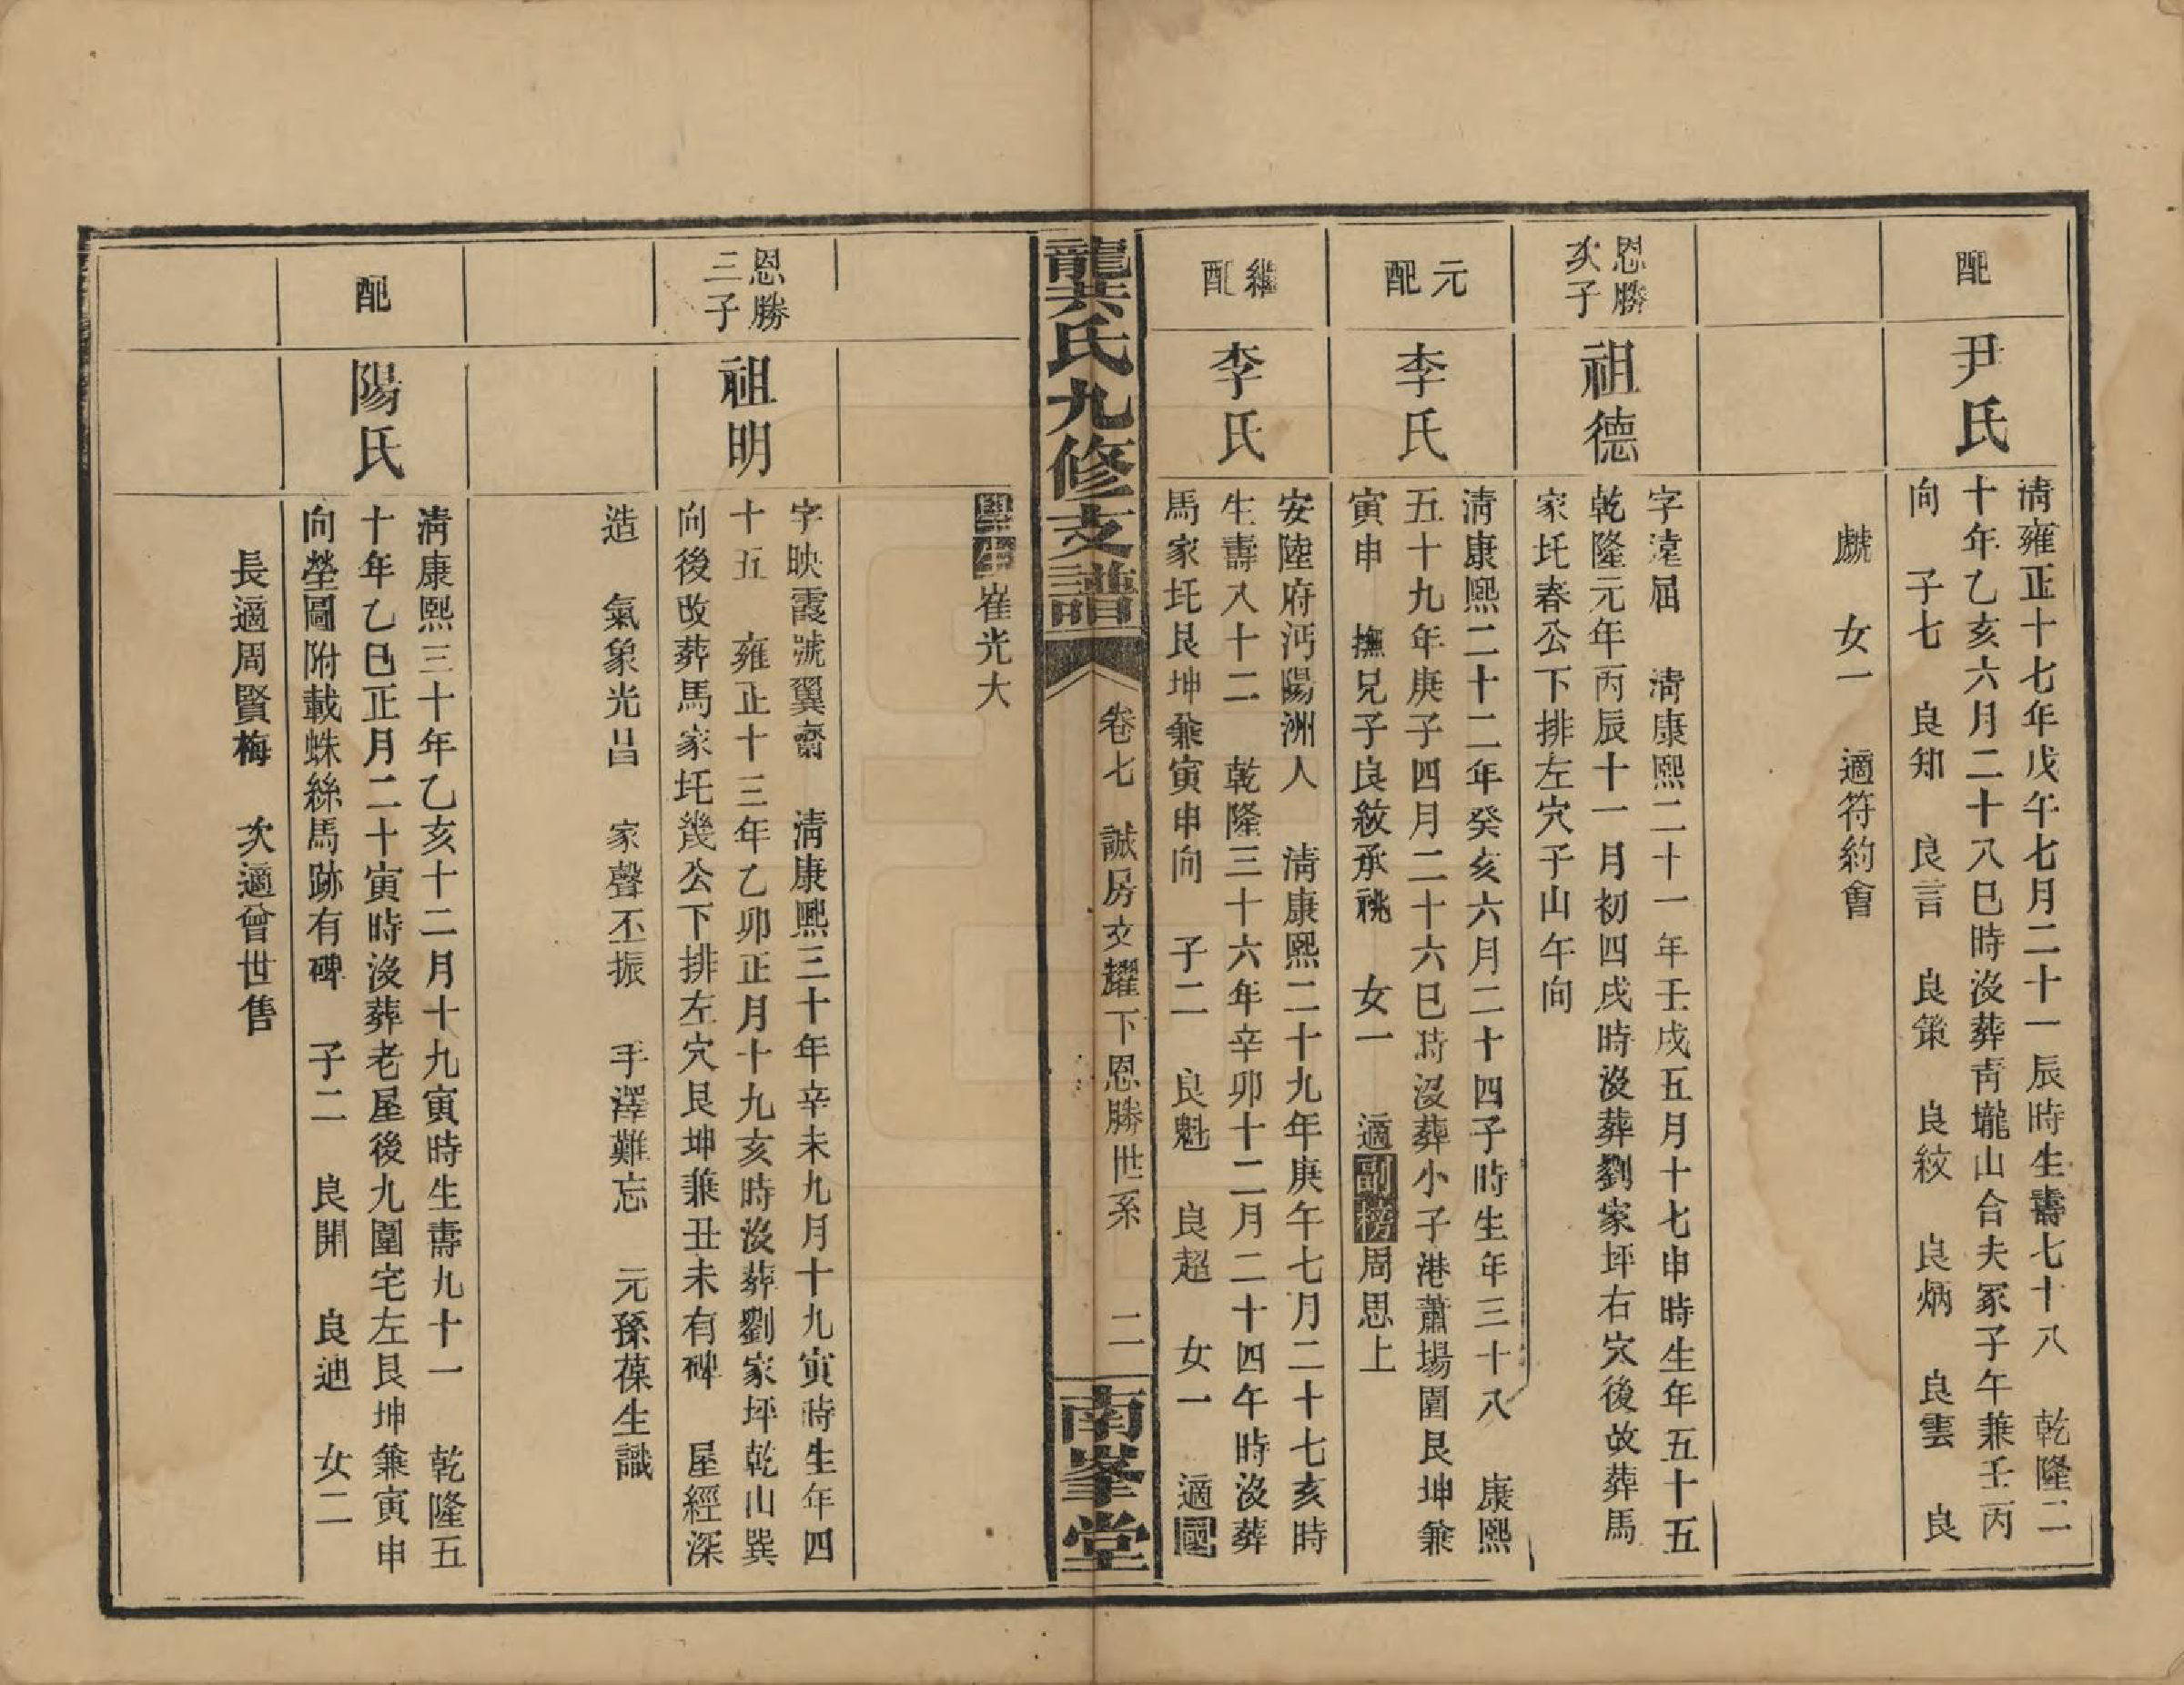 配
尹氏
清雍正十七年戊午七月二十一辰時生壽七十八　乾隆二
十年乙亥六月二十八巳時沒葬青壠山合夫冢子午兼壬丙
向　子七　良知　良言　良策　良紋　良炳　良雲　良
麒　女一　適符約會
恩勝
次子
祖德
字遠屆　清康熙二十一年壬戌五月十七申時生年五十五
乾隆元年丙辰十一月初四戌時沒葬劉家坪右穴後故葬馬
家圫春公下排左穴子山午向
元
配
李氏
清康熙二十二年癸亥六月二十四子時生年三十八　康熙
五十九年庚子四月二十六巳時沒葬小子港蕭場圍艮坤兼
寅申　撫兄子良紋承祧　女一　適副榜周思上
繼
配
李氏
安陸府沔陽洲人　清康熙二十九年庚午七月二十七亥時
生壽八十二　乾隆三十六年辛卯十二月二十四午時沒葬
馬家圫艮坤兼寅申向　子二　良魁　良超　女一　適國
龔氏九修支譜　卷七　誠房文耀下恩勝世系　二　南峯堂
學生崔光大
恩勝
三子
祖明
字映霞號翼齋　清康熙三十年辛未九月十九寅時生年四
十五　雍正十三年乙卯正月十九亥時沒葬劉家坪乾山巽
向後改葬馬家圫幾公下排左穴艮坤兼丑未有碑　屋經深
造　氣象光昌　家聲丕振　手澤難忘　元孫葆生識
配
陽氏
清康熙三十年乙亥十二月十九寅時生壽九十一　乾隆五
十年乙巳正月二十寅時沒葬老屋後九圍宅左艮坤兼寅申
向塋圖附載蛛絲馬跡有碑　子二　良開　良迪　女二
長適周賢梅　次適曾世售